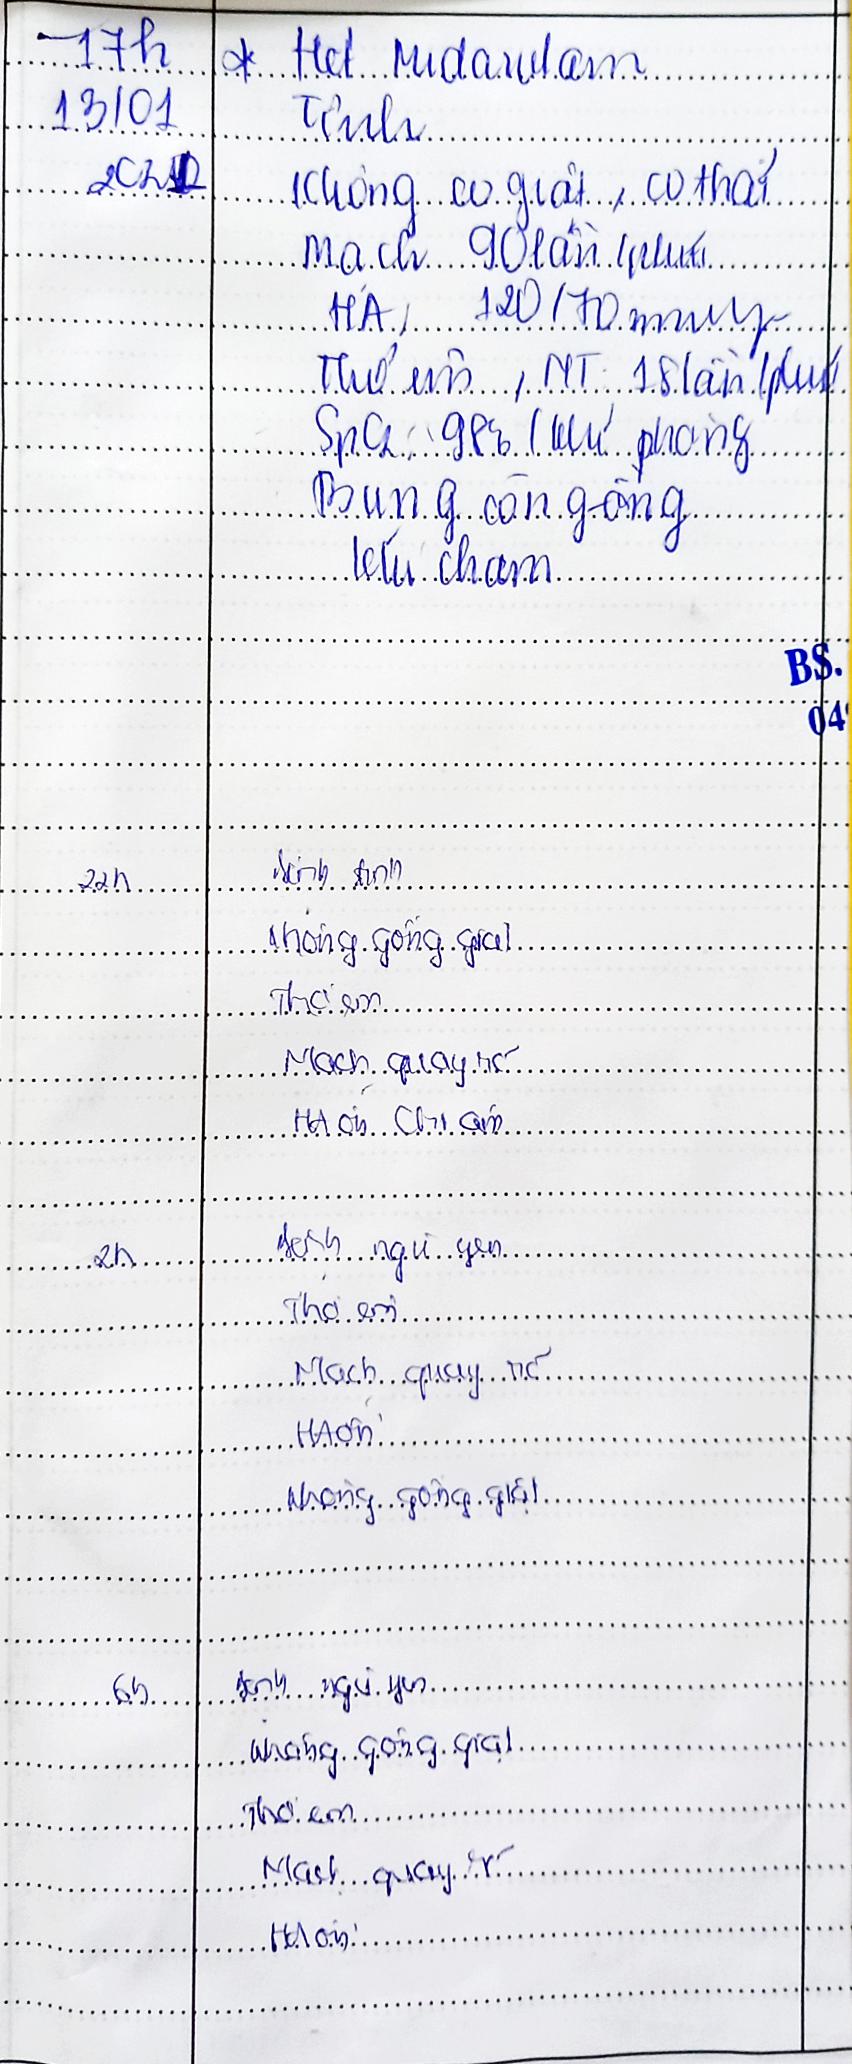 17h * Hết Midazolam
13/01 Tỉnh
Không co giật, co thắt
Mạch 90 lần/phút
HA, 120/70 mmHg
Thở êm, NT: 18 lần/phút
SpO2: 98% / khí phòng
Bụng còn gồng
kth chạm
BS.
04
22h Bệnh tỉnh
Không gồng giật
Thở êm
Mạch quay rõ
HA ổn
2h Bệnh ngủ yên
Thở êm
Mạch quay rõ
HA ổn
Không gồng giật
6h Bệnh ngủ yên
Không gồng giật
Thở êm
Mạch quay rõ
HA ổn